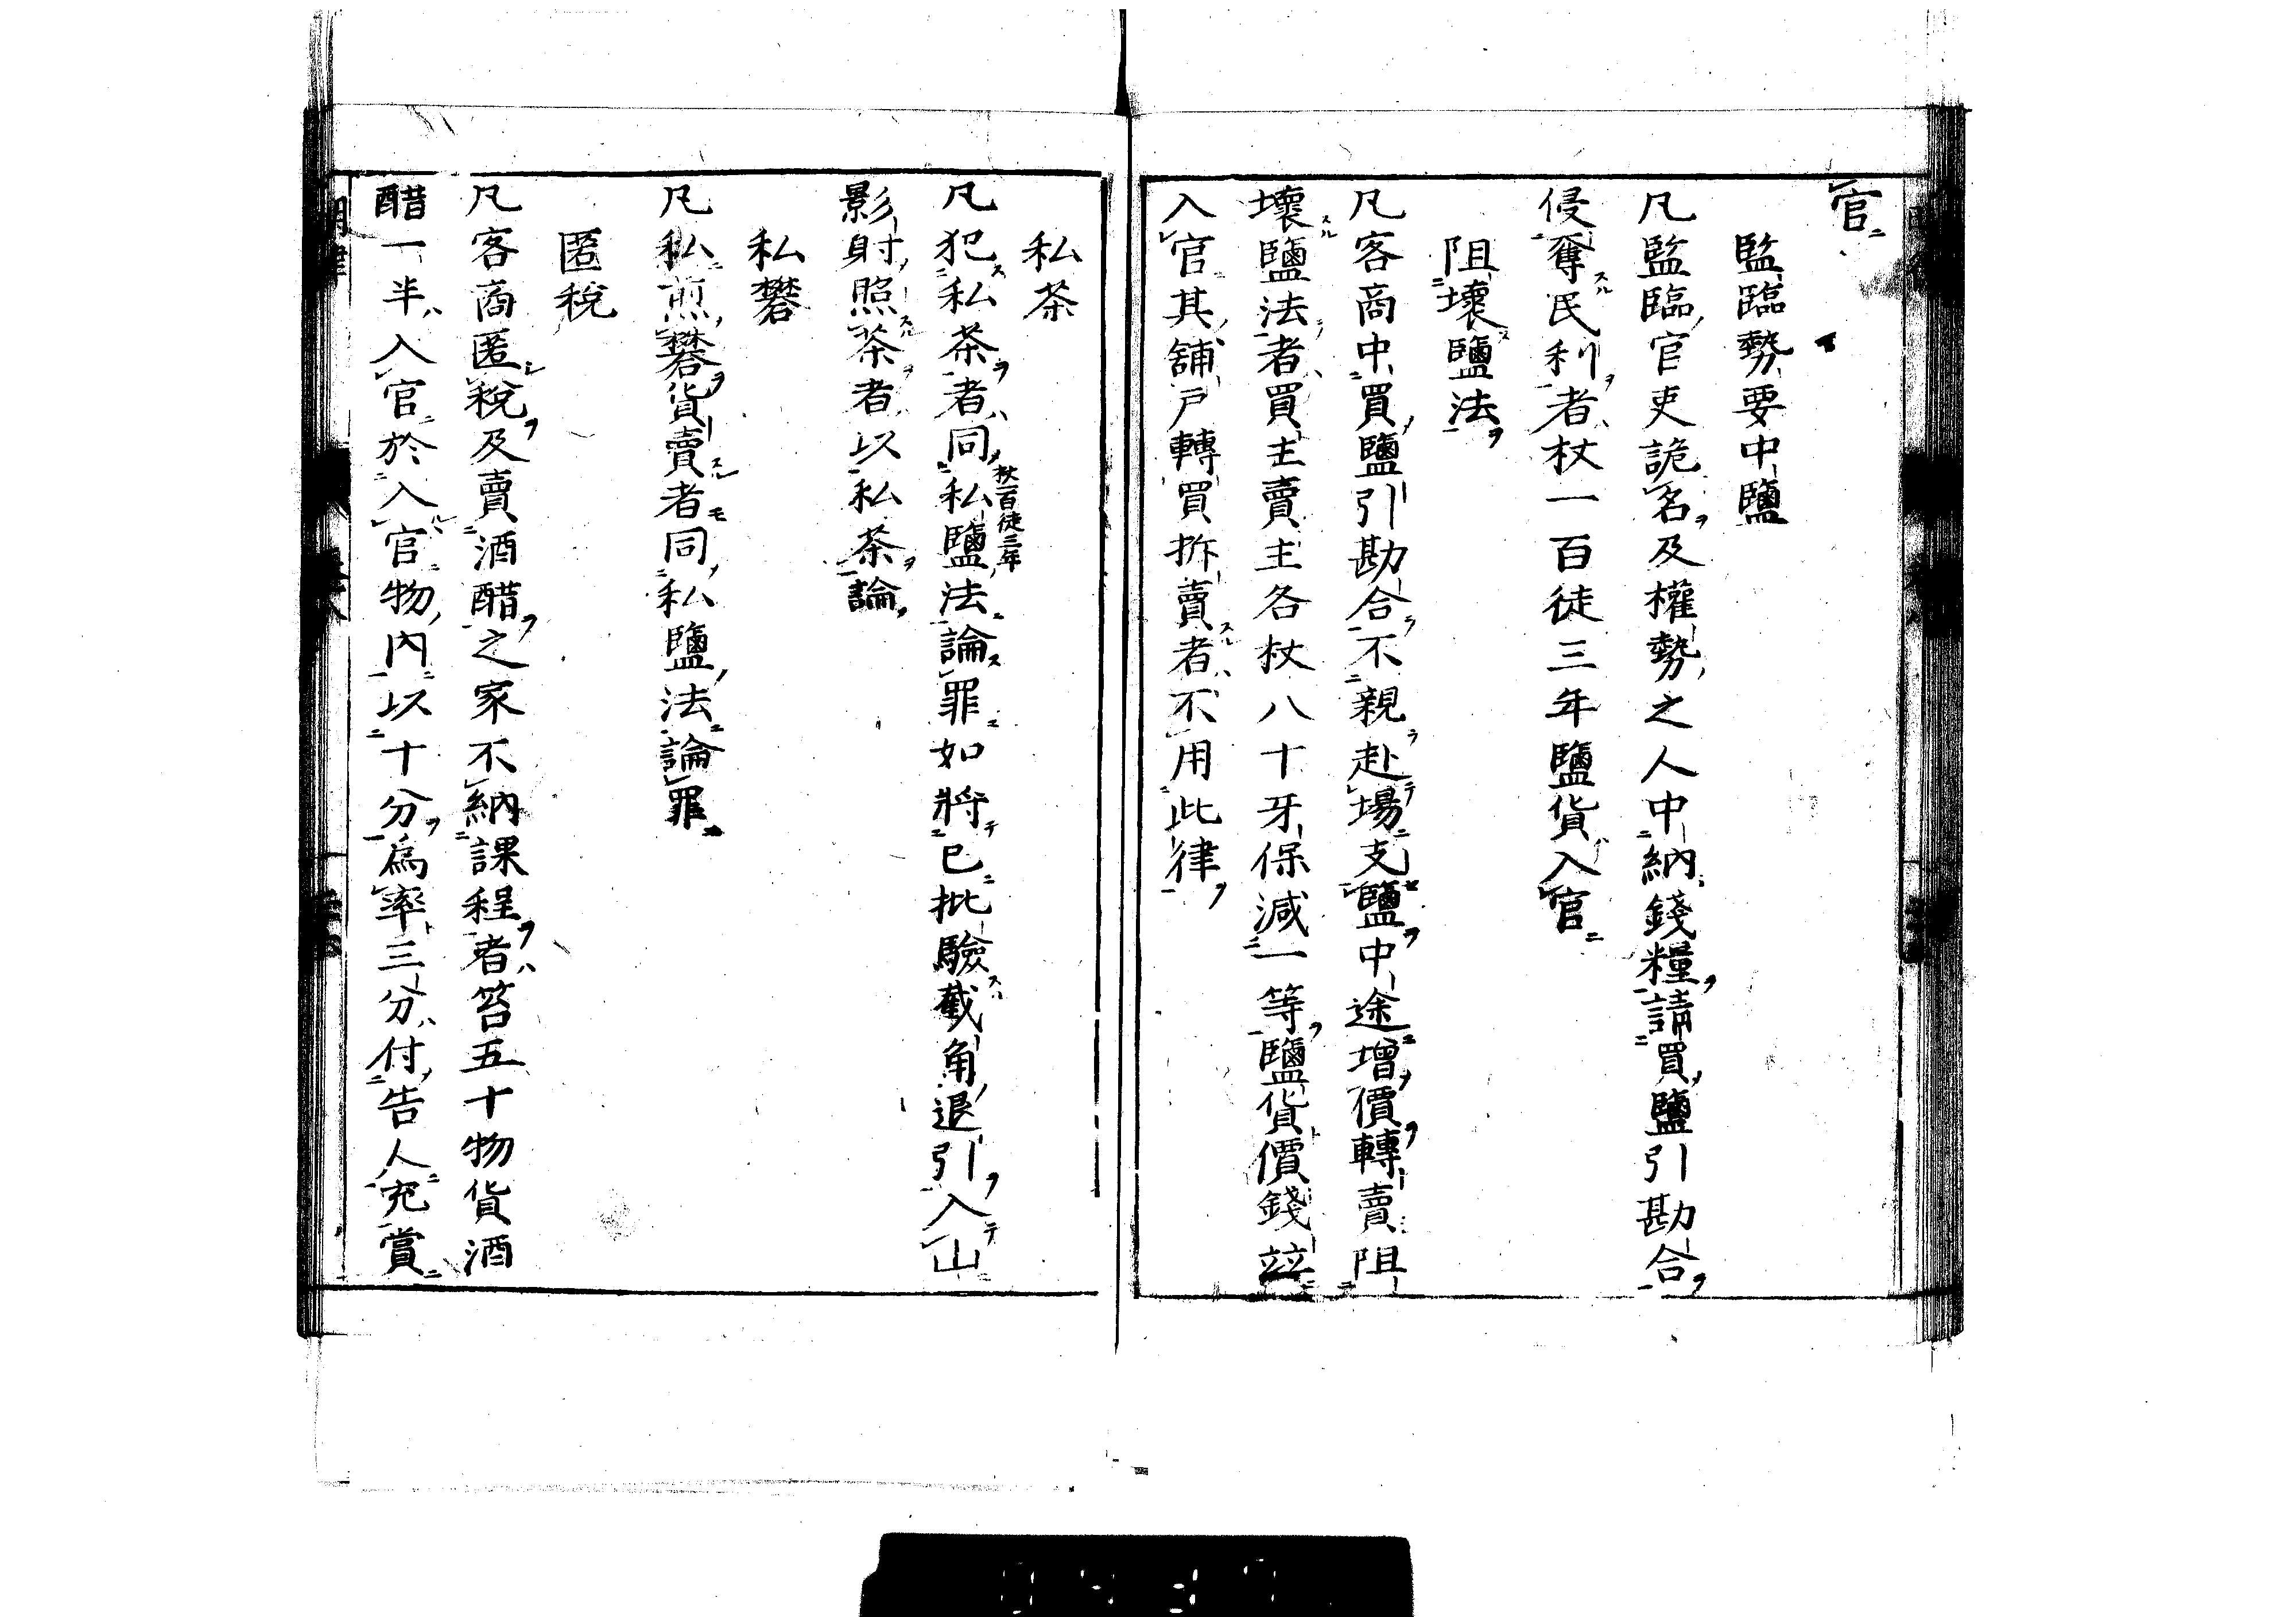 官
監臨勢要中鹽
凡監臨官吏詭名及權勢之人中納錢糧請買鹽引勘合
侵奪民利者杖一百徒三年鹽貨入官
阻壞鹽法
凡客商中買鹽引勘合不親赴場支鹽中途增價轉賣阻
壞鹽法者買主賣主各杖八十牙保減一等鹽貨價錢竝
入官其舖戶轉買拆賣者不用此律
私茶
凡犯私茶者同私鹽法論罪如將已批驗截角退引入山
杖一百徒三年
影射照茶者以私茶論
私礬
凡私煎礬貨賣者同私鹽法論罪
匿稅
凡客商匿稅及賣酒醋之家不納課程者笞五十物貨酒
醋一半入官於入官物內以十分爲率三分付告人充賞